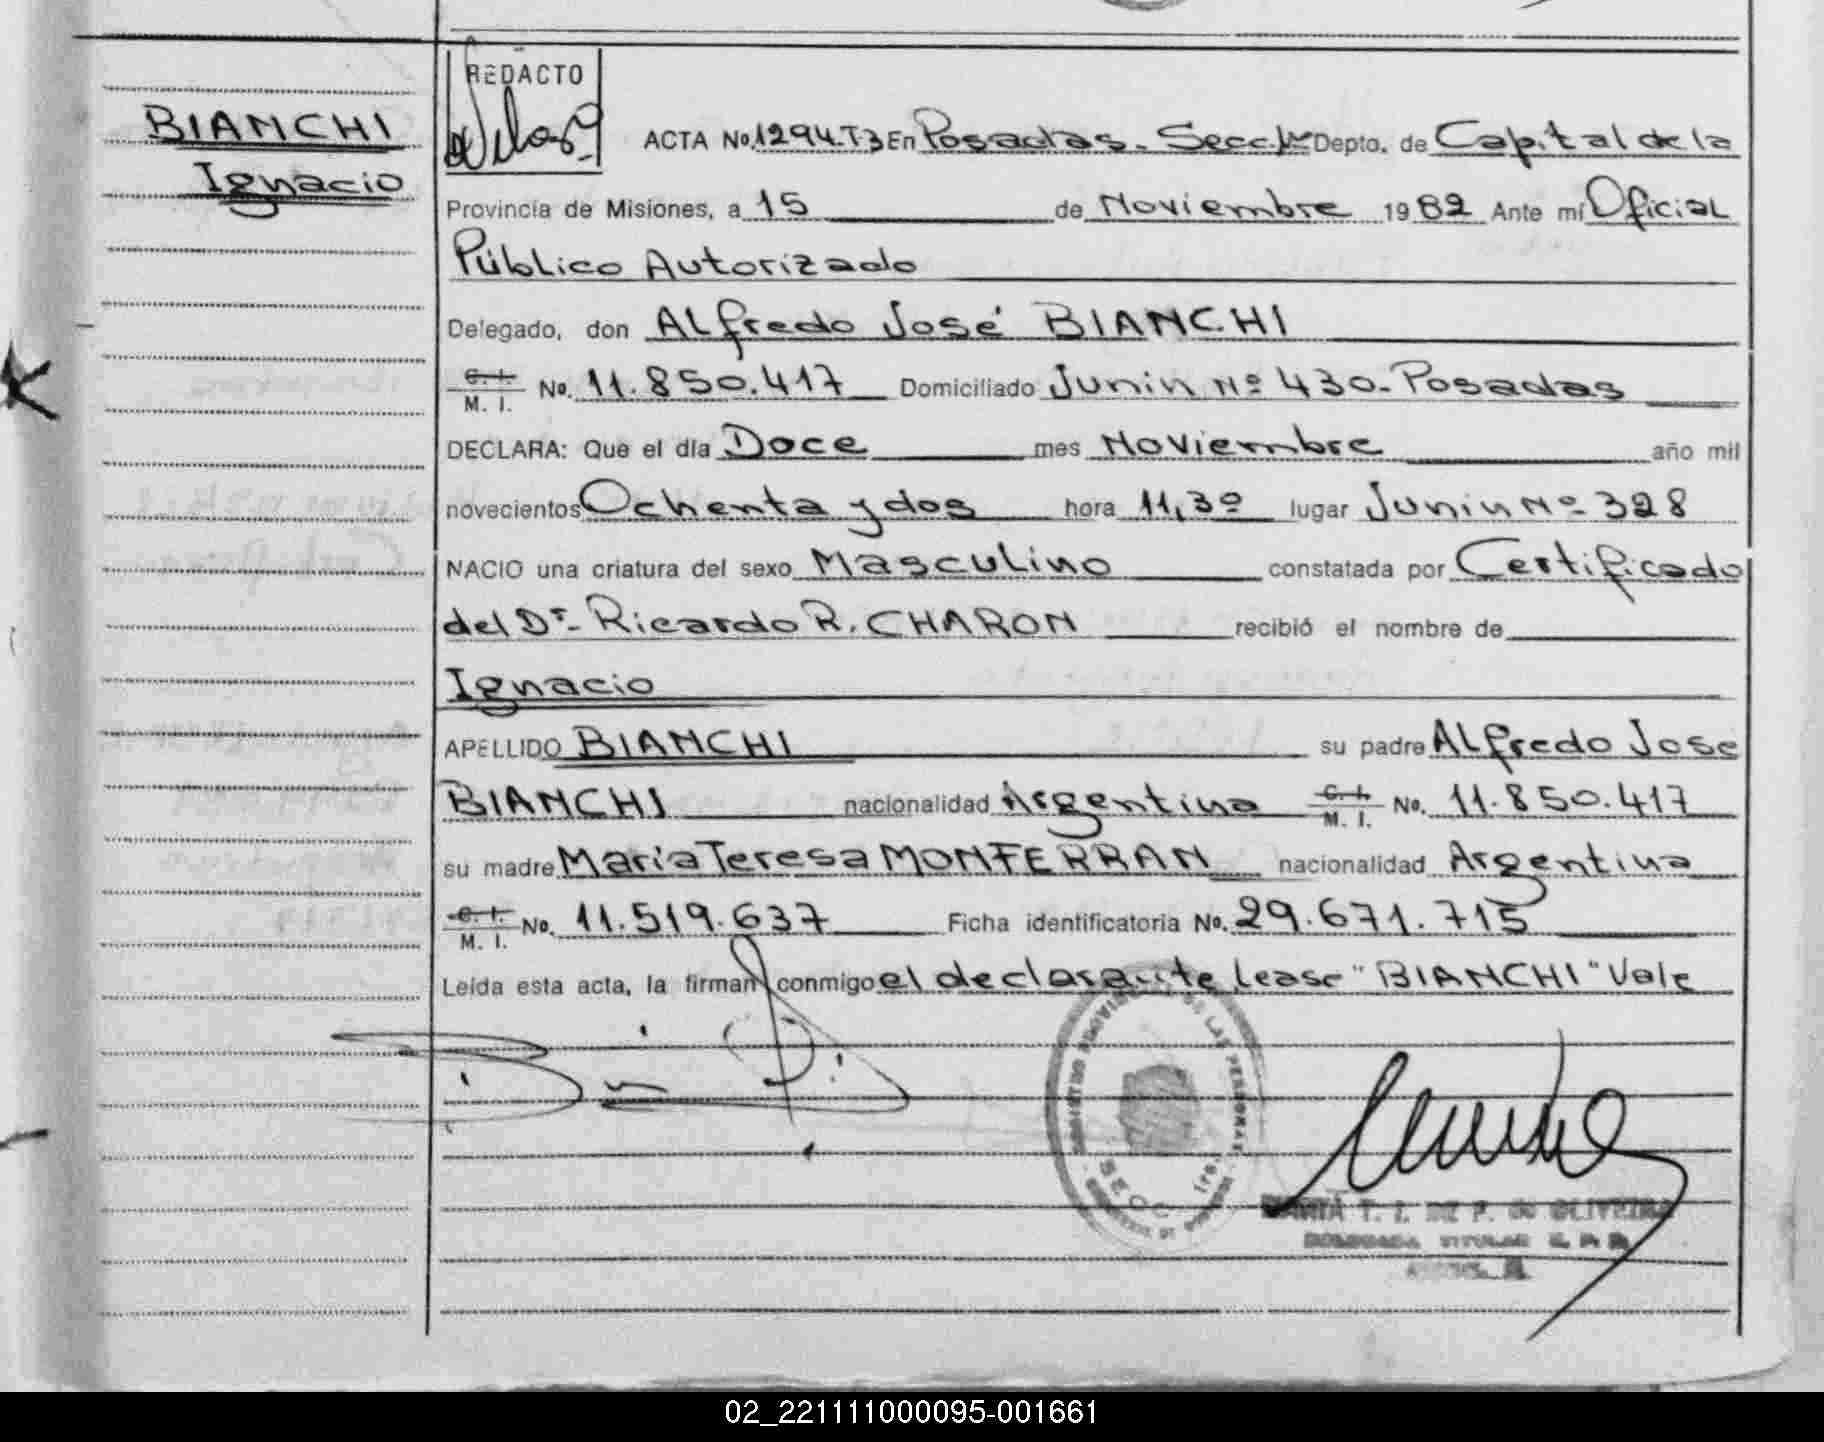 REDACTO
BIANCHI
Ignacio
ACTA No. 1294.T3 En Posadas. Secc. 1ra Depto. de Capital de la
Provincia de Misiones, a 15 de Noviembre 1982 Ante mí Oficial
Público Autorizado
Delegado, don ALfredo José BIANCHI
C. I.
M. I. No. 11.850.417 Domiciliado Junin Nº 430.- Posadas
DECLARA: Que el día Doce mes Noviembre año mil
novecientos Ochenta y dos hora 11,30 lugar Junin Nº 328
NACIO una criatura del sexo Masculino constatada por Certificado
del Dr. Ricardo R. CHARON recibió el nombre de
Ignacio
APELLIDO BIANCHI su padre ALfredo Jose
BIANCHI nacionalidad Argentina C. I. M. I. No. 11.850.417
su madre María Teresa MONFERRAN nacionalidad Argentina
C. I.
M. I. No. 11.519.637 Ficha identificatoria No. 29.671.715
Leída esta acta, la firman conmigo el declarante Lease "BIANCHI" Vale
REGISTRO PROVINCIAL DE LAS PERSONAS
SECC. 1ra.
MARIA T. I. DE F. DE OLIVEIRA
02_221111000095-001661